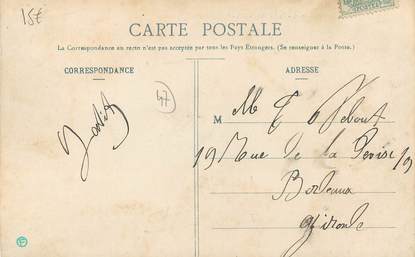 15€
CARTE POSTALE
La Correspondance au recto n'est pas acceptée par tous les Pays Etrangers. (Se renseigner à la Poste.)
CORRESPONDANCE
ADRESSE
47
M
19 Rue de la 19
Bordeaux
Gironde